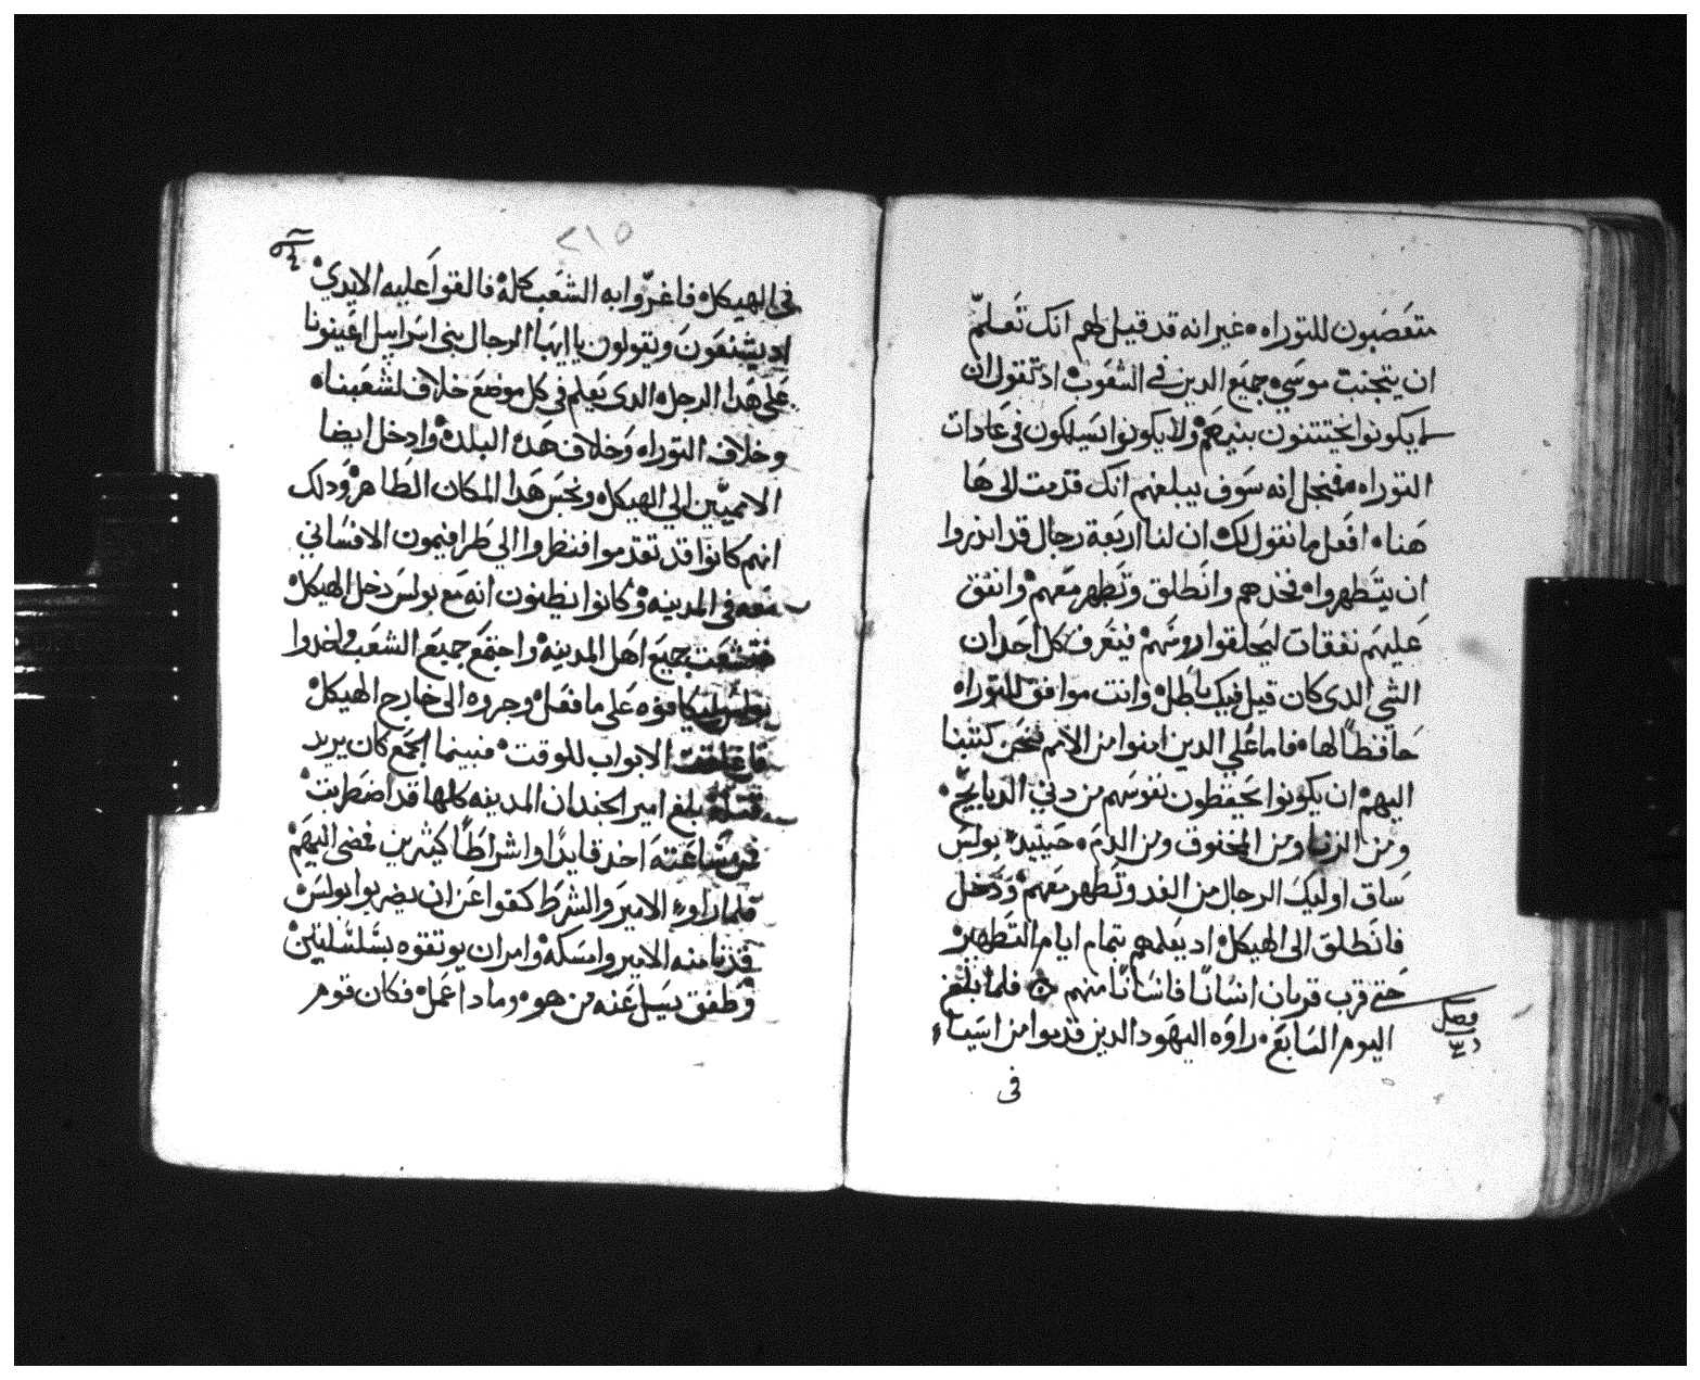 متعصبون للتوراه غير انه قد قيل لهم انك تعلم
ان يتجنب موسي جميع الدين في الشعوب اد تقول ان
لا يكونوا يختتنون بنيهم ولا يكونوا يسيلكون في عادات
التوراه فمنجل انه سوف يبلغهم انك قدمت الى ها
هنا افعل ما نقول لك ان لنا اربعة رجال قد اندروا
ان يتطهروا فخدهم وانطلق وتطهر معهم وانفق
عليهم نفقات ليحلقوا روسهم فيتعرف كل احد ان
الشي الدى كان قيل فيك باطل وانت موافق للتوراه
حافظاً لها فاما علي الدين امنوا من الامم فنحن كتبنا
اليهم ان يكونوا يحفظون نفوسهم من دبي الدبايح
ومن الزنا ومن المخنوق ومن الدم حينيد بولس
ساق اوليك الرجال من الغد وتطهر معهم ودخل
فانطلق الى الهيكل اد يعلمهم بتمام ايام التطهير
حتي قرب قربان انسانا فانسانا منهم فلما بلغ
فصل
اليوم السابع راوه اليهود الدين قدموا من اسيا
في
٢١٥
في الهيكل فاغروا به الشعب كله فالقوا عليه الايدي
اد يشنعون ويقولون يا ايها الرجال بني اسراييل اعينونا
على هدا الرجل الدى يعلم في كل موضع خلاف لشعبنا
وخلاف التوراه وخلاف هده البلده وادخل ايضا
الامميين الي الهيكل ونجس هدا المكان الطاهر ودلك
انهم كانوا قد تقدموا فنظروا الي طرافيمون الافساني
معه في المدينه وكانوا يظنون انه مع بولس دخل الهيكل
فتشعب جميع اهل المدينه واجتمع جميع الشعب واخدوا
بولس ليكافوه على ما فعل وجروه الى خارج الهيكل
فاغلقت الابواب للوقت فبينما الجمع كان يريد
قتله بلغ امير الجند ان المدينه كلها قد اضطربت
فمن ساعته اخد قايدا واشراطا كثيرين فمضى اليهم
فلما راوا الامير والشرط كفوا عن ان يضربوا بولس
فدنا منه الامير وامسكه وامر ان يوتقوه بسلسلتين
وطفق يسيل عنه من هو وما دا عمل فكان قوم